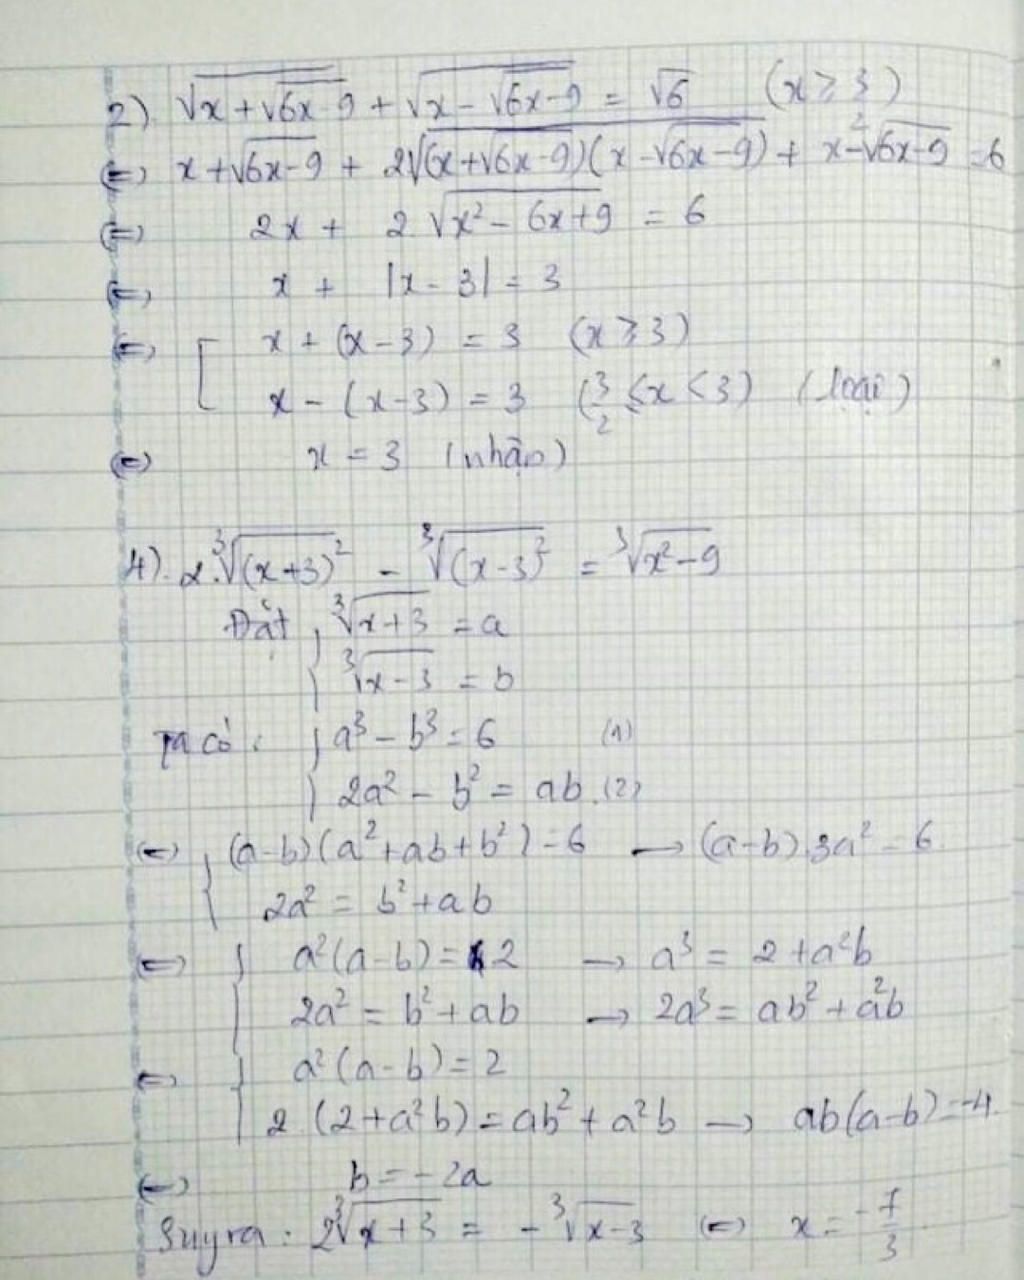 2) √(x + √(6x - 9)) + √(x - √(6x - 9)) = √6 (x ≥ 3/2)
⇔ x + √(6x - 9) + 2√((x + √(6x - 9))(x - √(6x - 9))) + x - √(6x - 9) = 6
⇔ 2x + 2√(x² - 6x + 9) = 6
⇔ x + |x - 3| = 3
⇔ [ x + (x - 3) = 3 (x ≥ 3)
x - (x - 3) = 3 (3/2 ≤ x < 3) (loại)
⇔ x = 3 (nhận)
4). 2.∛(x+3)² - ∛(x-3)² = ∛(x² - 9)
Đặt { ∛(x+3) = a
∛(x-3) = b
Ta có: { a³ - b³ = 6 (1)
2a² - b² = ab. (2)
⇔ { (a-b)(a² + ab + b²) = 6 → (a-b).3a² = 6
2a² = b² + ab
⇔ { a²(a-b) = 2 → a³ = 2 + a²b
2a² = b² + ab → 2a³ = ab² + a²b
⇔ { a²(a-b) = 2
2(2 + a²b) = ab² + a²b → ab(a-b) = -4.
⇔ b = -2a
Suy ra: 2∛(x+3) = -∛(x-3) ⇔ x = -7/3